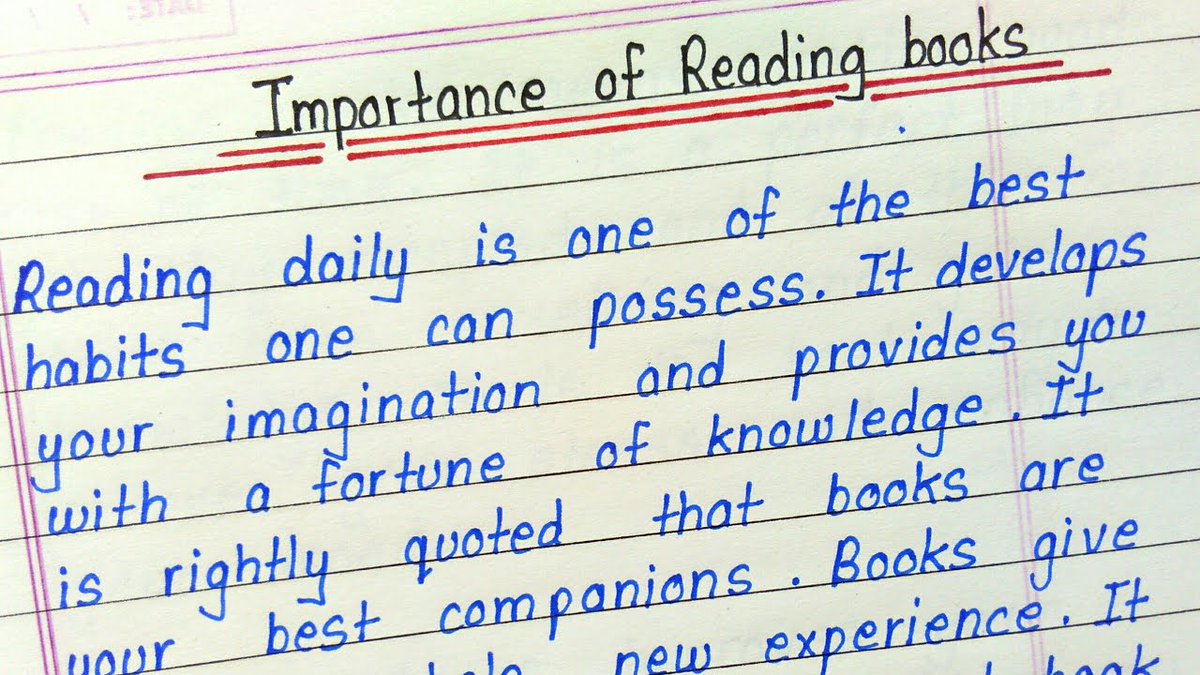 Importance of Reading books
Reading daily is one of the best
habits one can possess. It develops
your imagination and provides you
with a fortune of knowledge. It
is rightly quoted that books are
your best companions. Books give
new experience. It
book